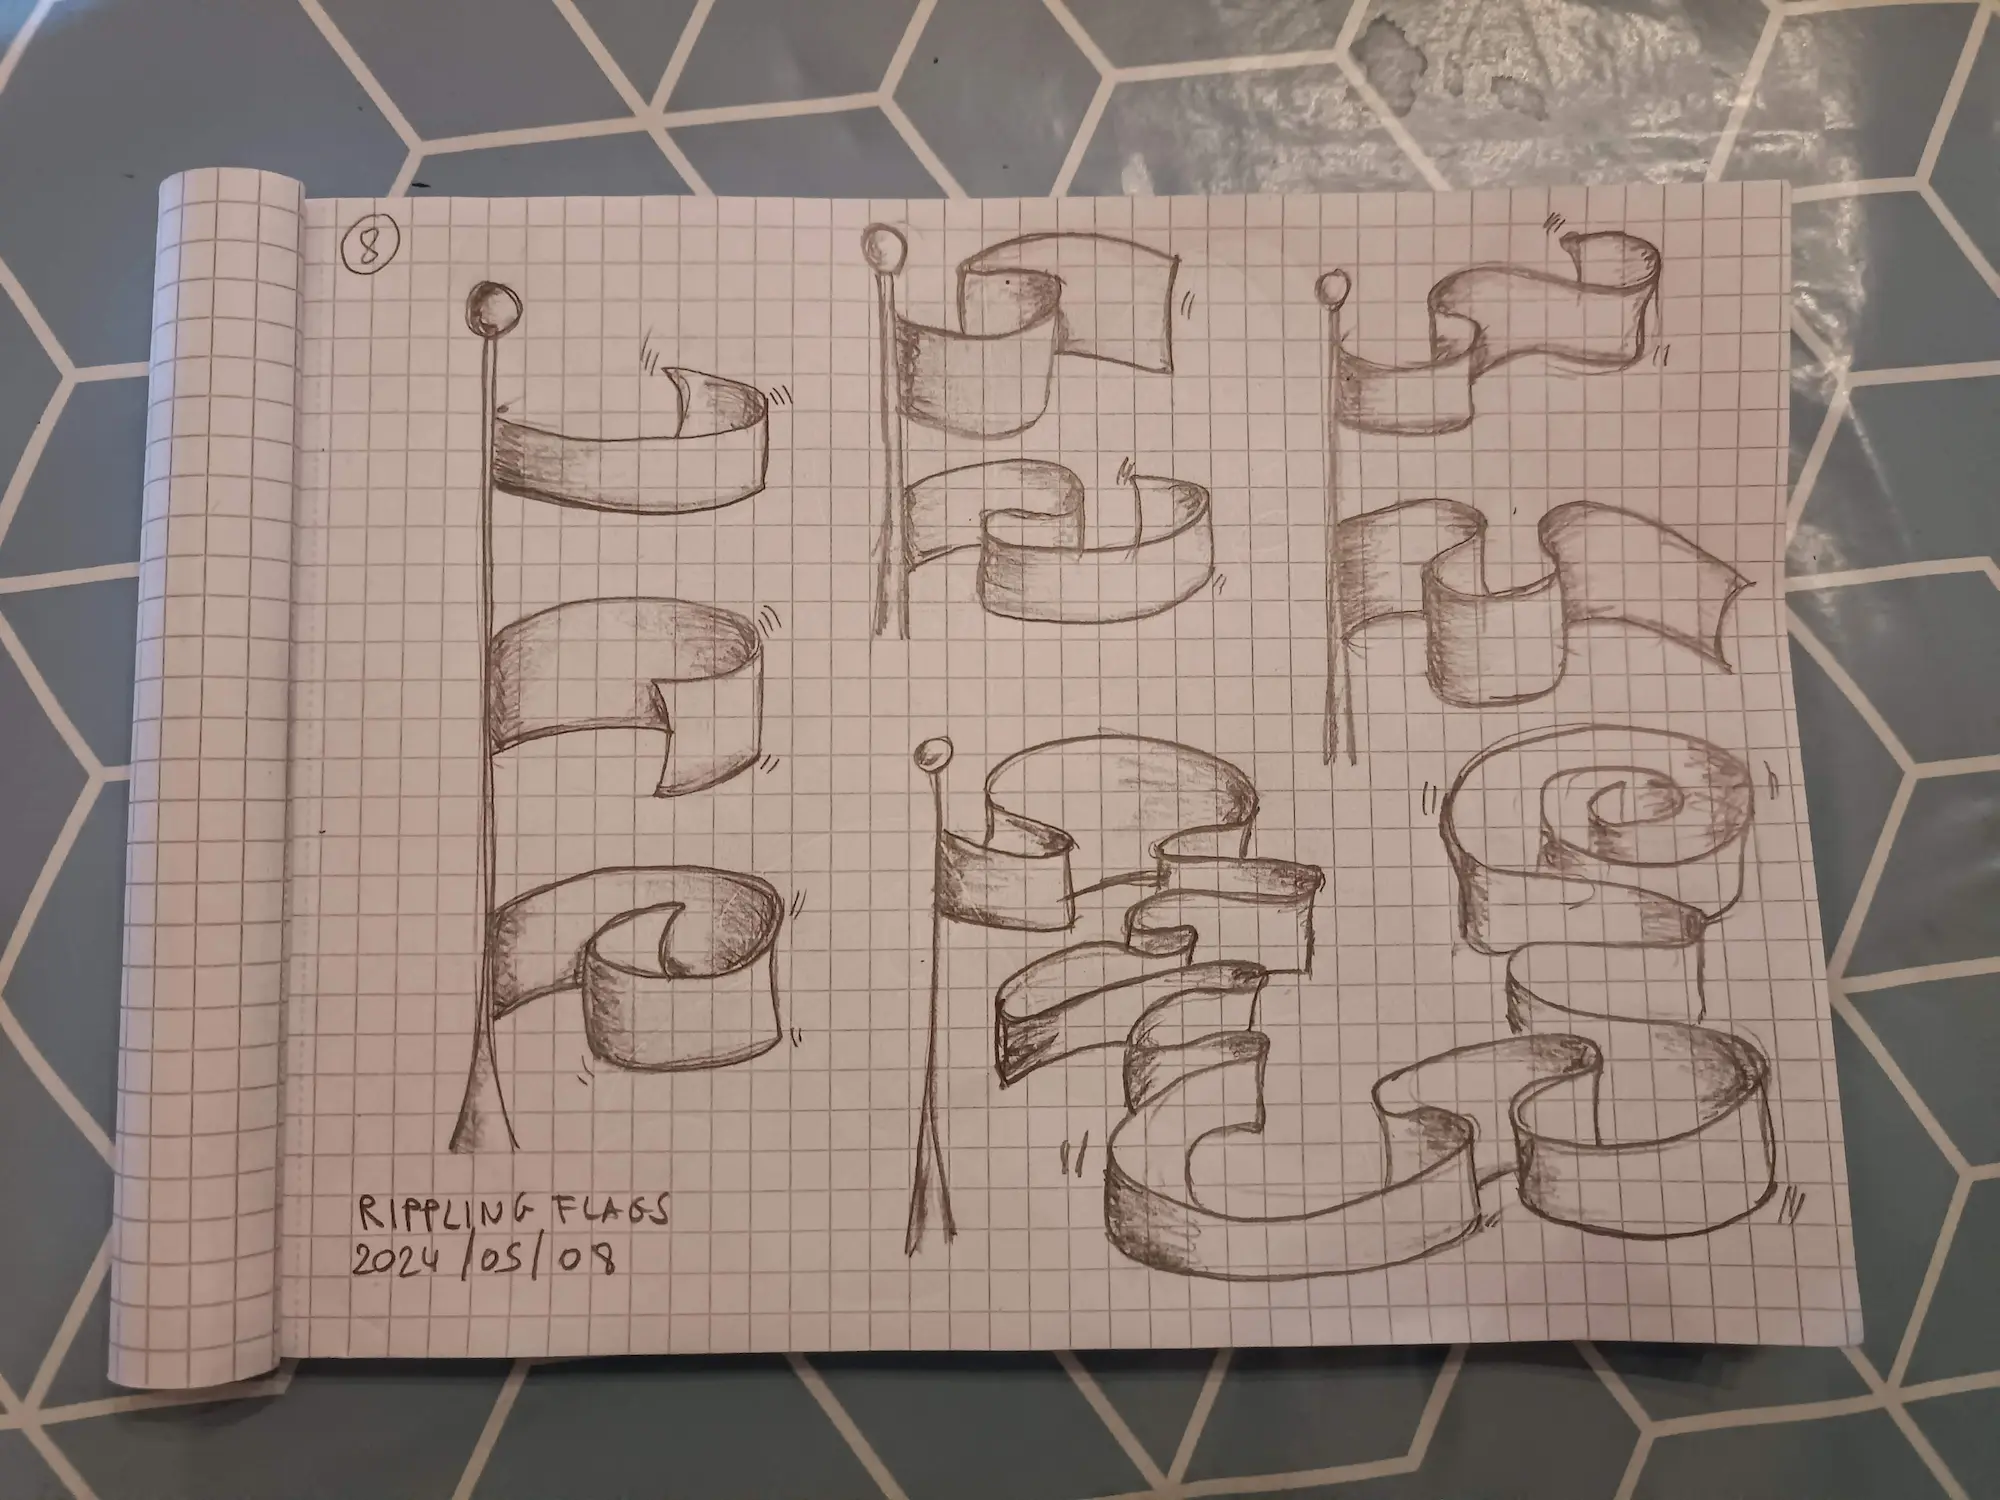 8
RIPPLING FLAGS
2024/05/08